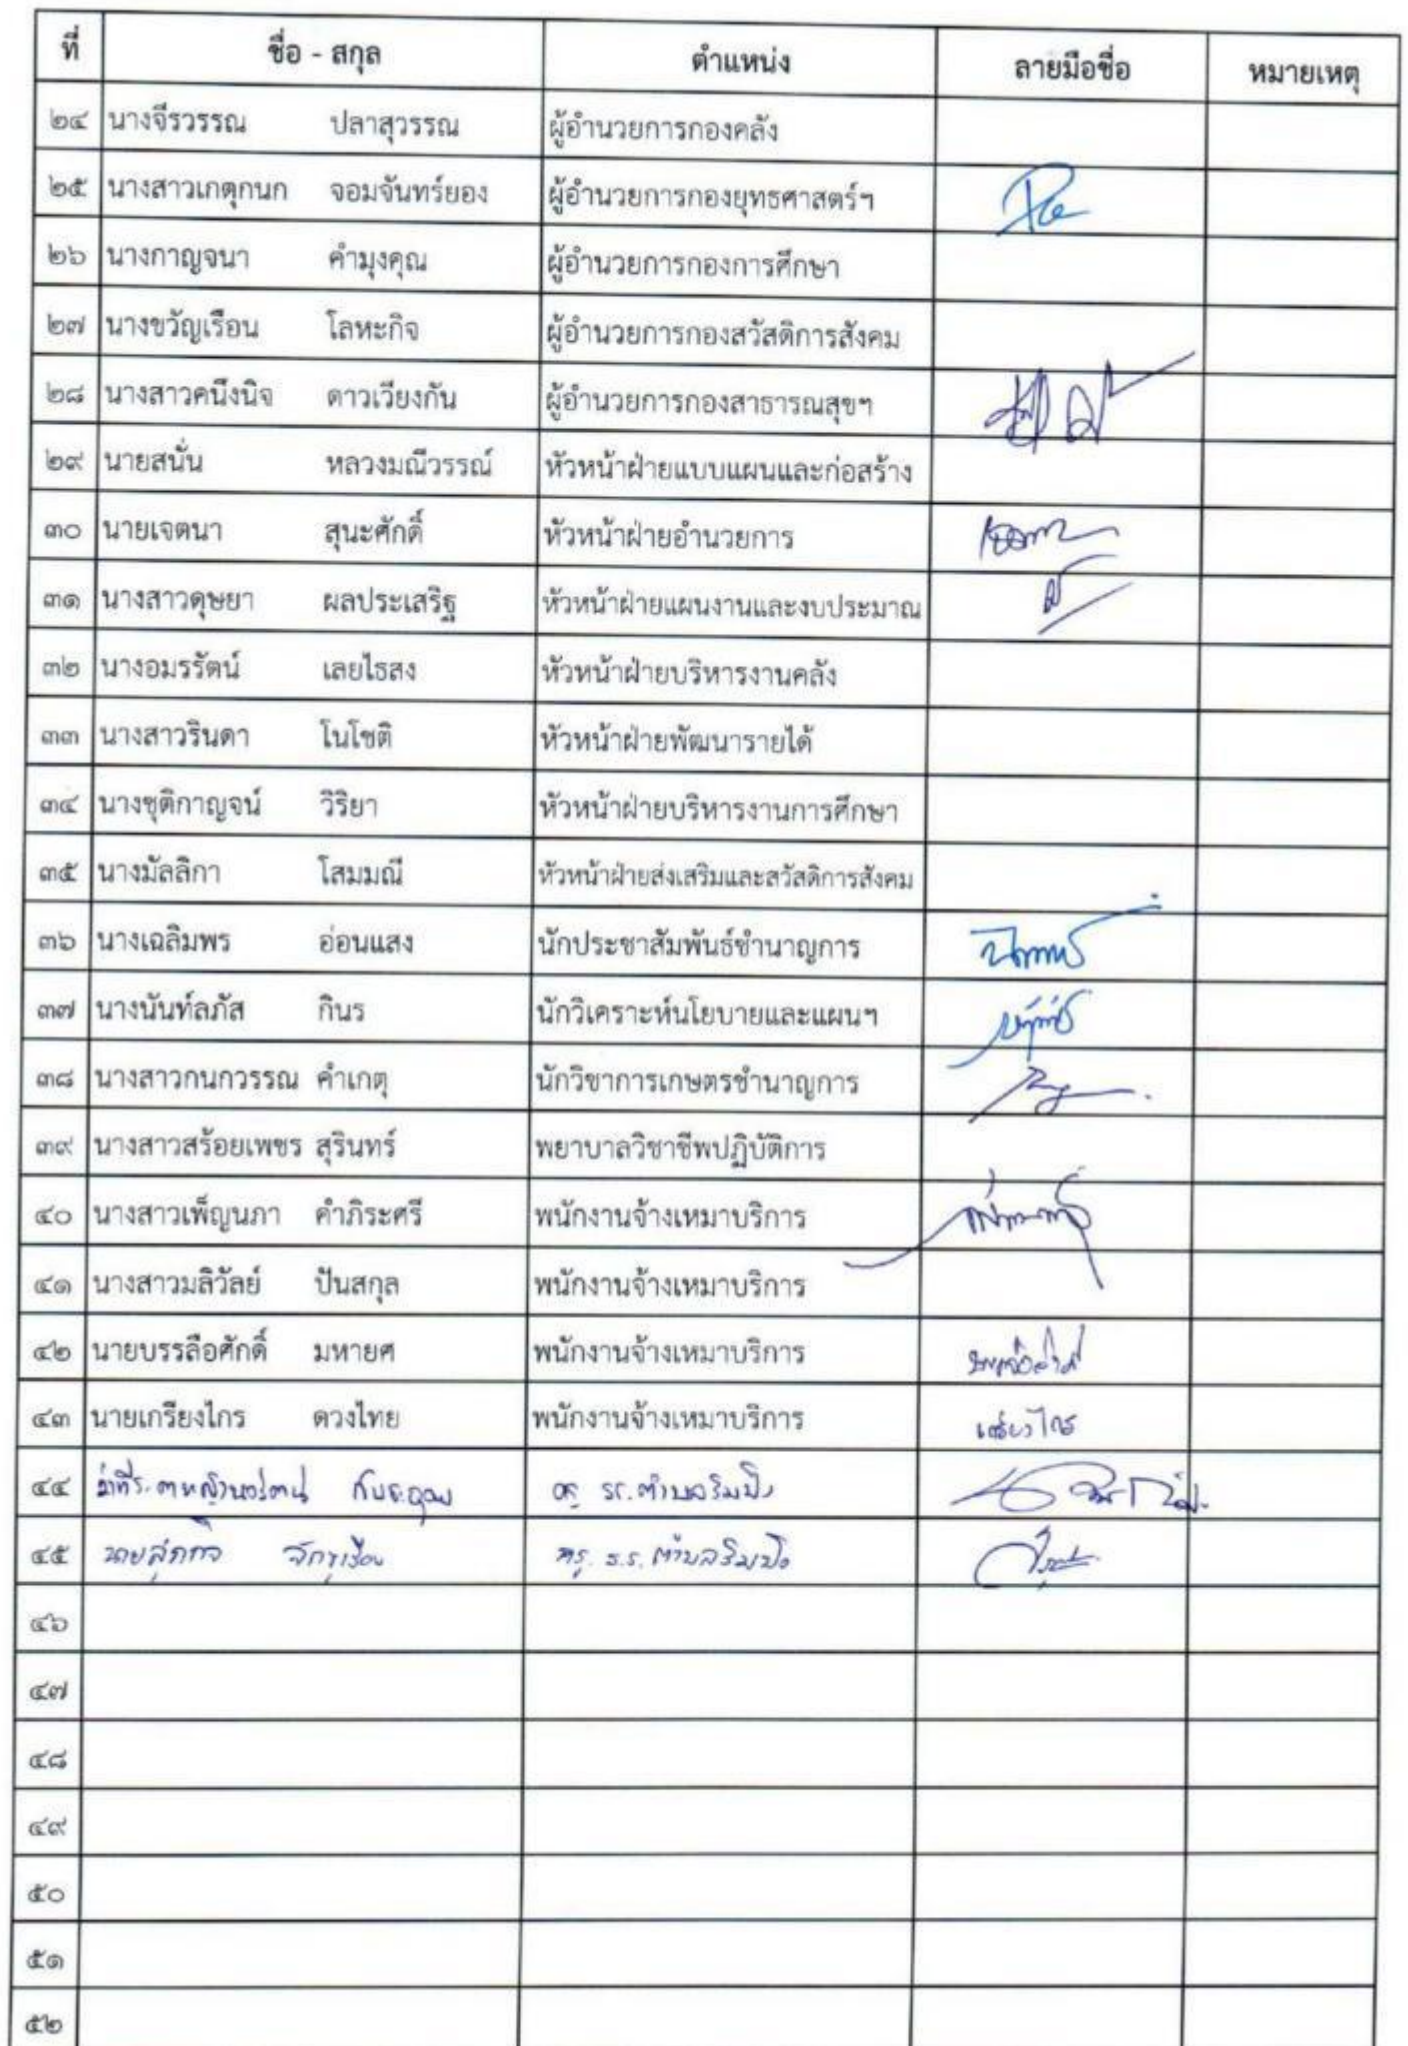 ที่ ชื่อ - สกุล ตำแหน่ง ลายมือชื่อ หมายเหตุ
๒๔ นางจีรวรรณ ปลาสุวรรณ ผู้อำนวยการกองคลัง
๒๕ นางสาวเกตุกนก จอมจันทร์ยอง ผู้อำนวยการกองยุทธศาสตร์ฯ
๒๖ นางกาญจนา คำมุงคุณ ผู้อำนวยการกองการศึกษา
๒๗ นางขวัญเรือน โลหะกิจ ผู้อำนวยการกองสวัสดิการสังคม
๒๘ นางสาวคนึงนิจ ดาวเวียงกัน ผู้อำนวยการกองสาธารณสุขฯ
๒๙ นายสนั่น หลวงมณีวรรณ์ หัวหน้าฝ่ายแบบแผนและก่อสร้าง
๓๐ นายเจตนา สุนะศักดิ์ หัวหน้าฝ่ายอำนวยการ
๓๑ นางสาวดุษยา ผลประเสริฐ หัวหน้าฝ่ายแผนงานและงบประมาณ
๓๒ นางอมรรัตน์ เลยไธสง หัวหน้าฝ่ายบริหารงานคลัง
๓๓ นางสาวรินดา โนโชติ หัวหน้าฝ่ายพัฒนารายได้
๓๔ นางชุติกาญจน์ วิริยา หัวหน้าฝ่ายบริหารงานการศึกษา
๓๕ นางมัลลิกา โสมมณี หัวหน้าฝ่ายส่งเสริมและสวัสดิการสังคม
๓๖ นางเฉลิมพร อ่อนแสง นักประชาสัมพันธ์ชำนาญการ
๓๗ นางนันท์ลภัส กินร นักวิเคราะห์นโยบายและแผนฯ
๓๘ นางสาวกนกวรรณ คำเกตุ นักวิชาการเกษตรชำนาญการ
๓๙ นางสาวสร้อยเพชร สุรินทร์ พยาบาลวิชาชีพปฏิบัติการ
๔๐ นางสาวเพ็ญนภา คำภิระศรี พนักงานจ้างเหมาบริการ
๔๑ นางสาวมลิวัลย์ ปันสกุล พนักงานจ้างเหมาบริการ
๔๒ นายบรรลือศักดิ์ มหายศ พนักงานจ้างเหมาบริการ
๔๓ นายเกรียงไกร ดวงไทย พนักงานจ้างเหมาบริการ เกรียงไกร
๔๔
๔๕ ครู ร.ร. ตำบลริมปิง
๔๖
๔๗
๔๘
๔๙
๕๐
๕๑
๕๒